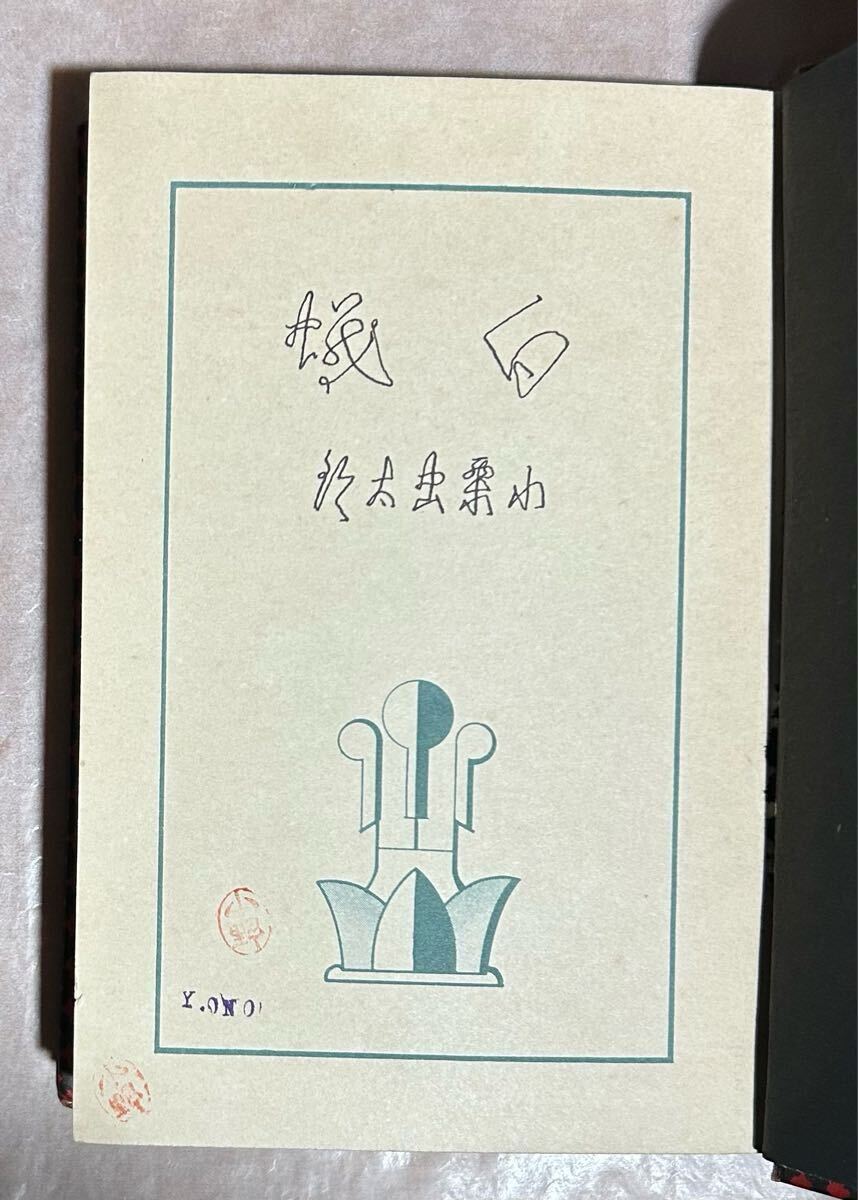 白蟻
小栗虫太郎
小野
Y.ONO
小野